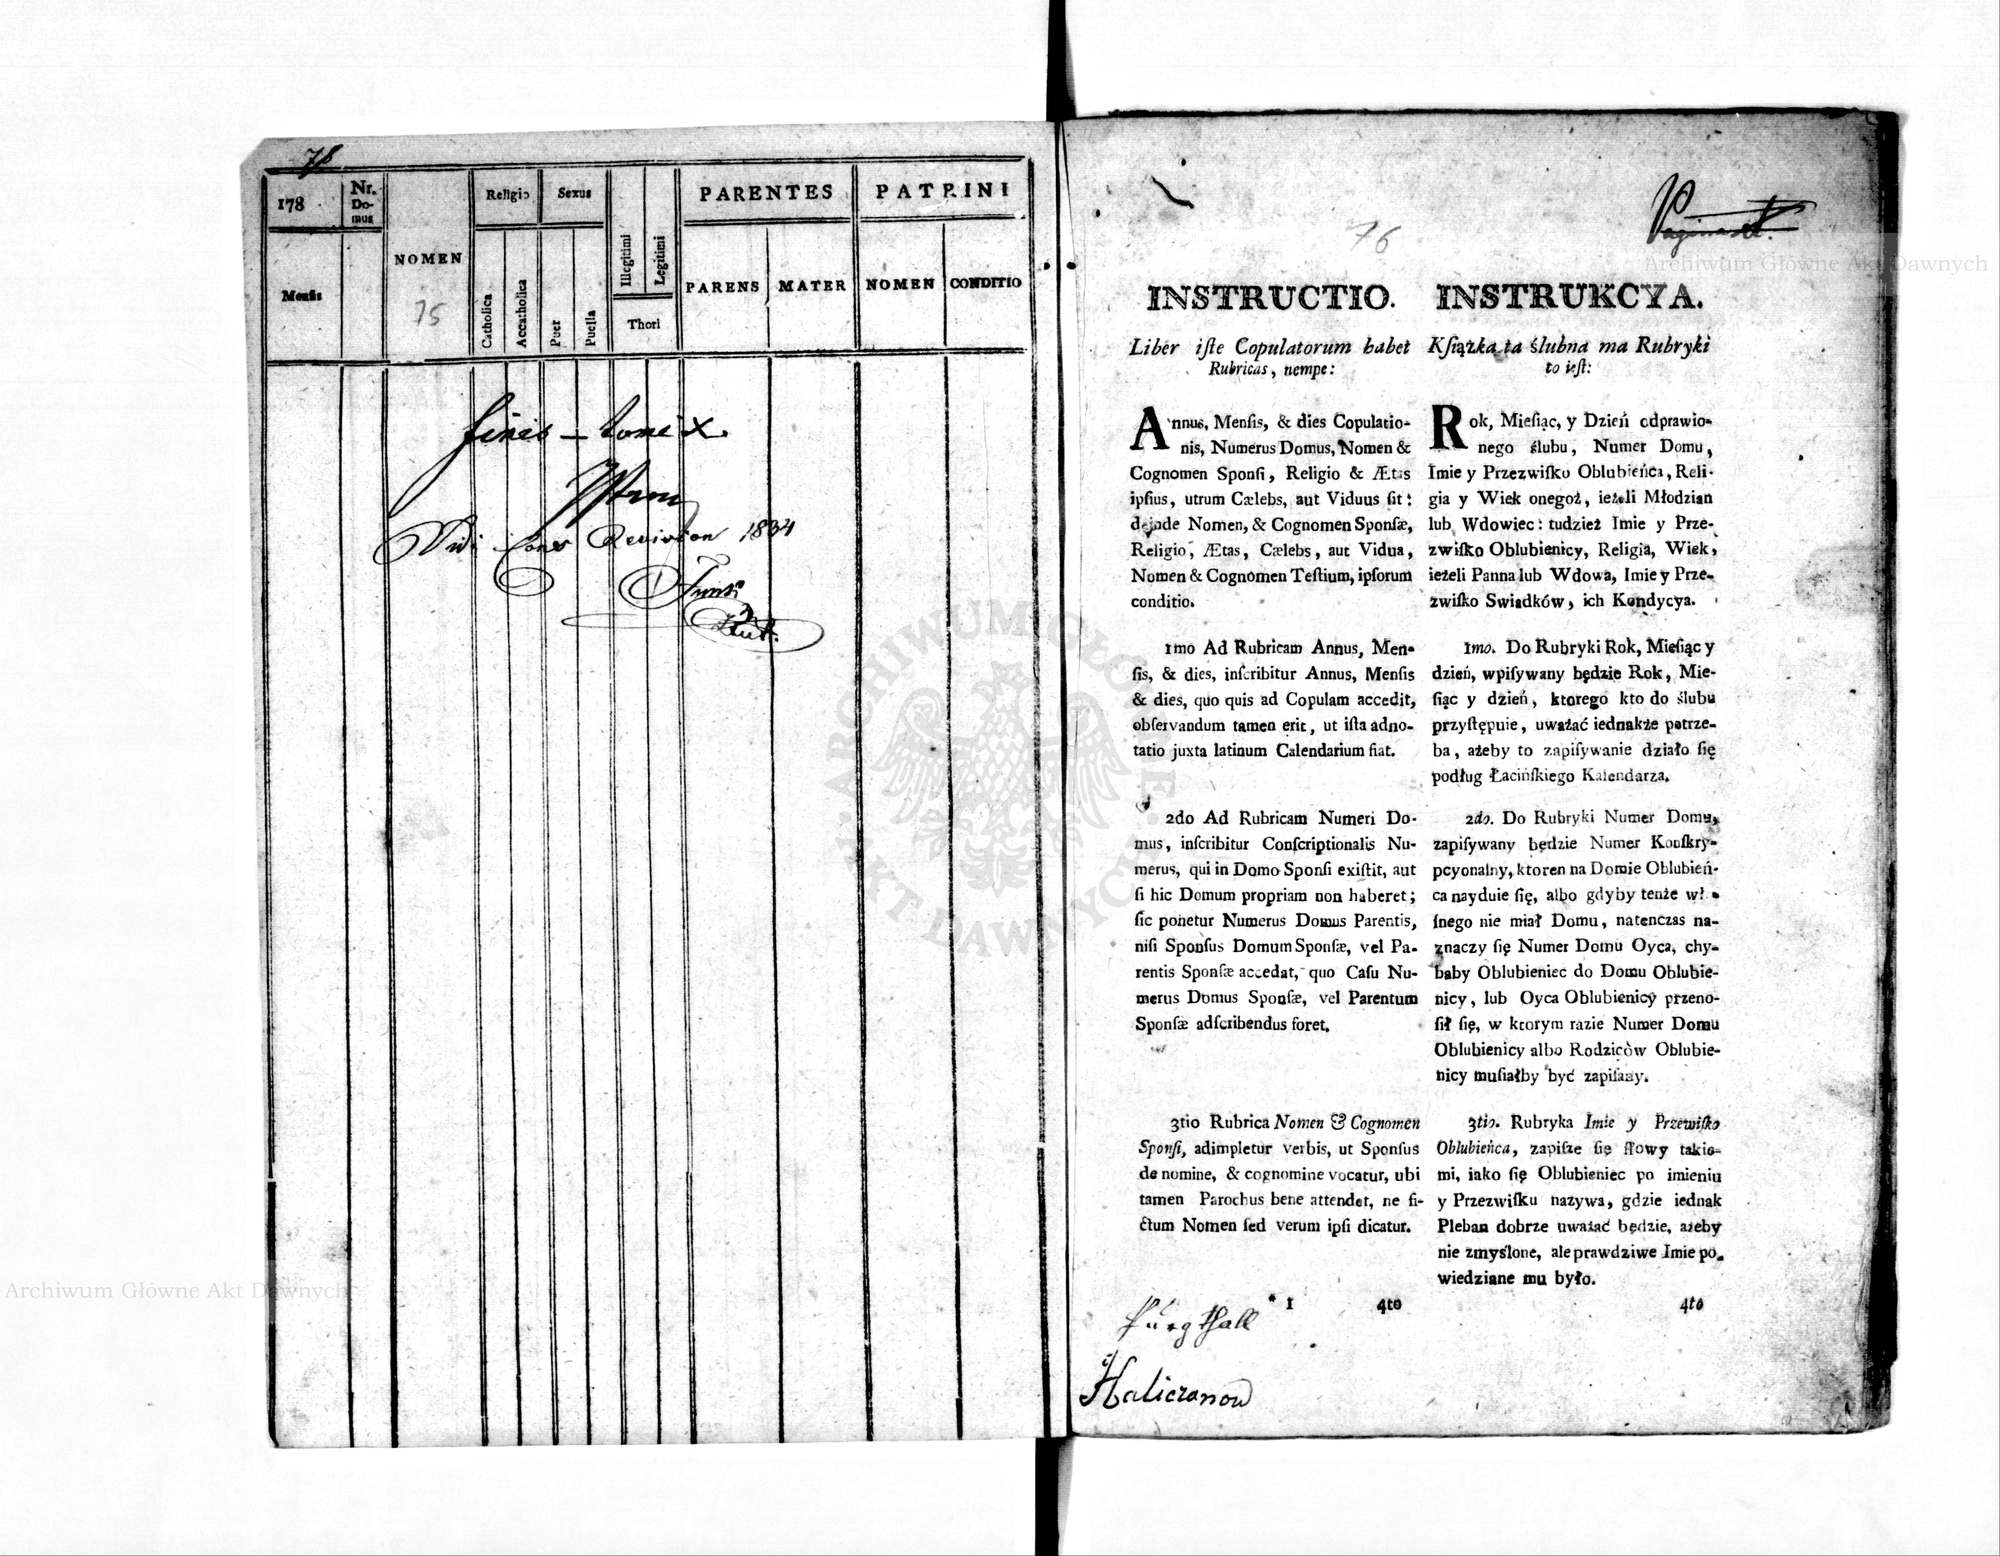 78
178
Nr.
Do-
mus
Religio
Sexus
PARENTES
PATRINI
Mensis
NOMEN
75
Catholica
Accatholica
Puer
Puella
Illegitimi
Legitimi
Thori
PARENS
MATER
NOMEN
CONDITIO
finis – tomi X.
Vidi Cons Revision 1834
76
Archiwum Główne Akt Dawnych
INSTRUCTIO.
Liber iſte Copulatorum habet
Rubricas, nempe:
Annus, Menſis, & dies Copulatio-
nis, Numerus Domus, Nomen &
Cognomen Sponſi, Religio & Ætas
ipſius, utrum Cælebs, aut Viduus ſit:
deinde Nomen, & Cognomen Sponſæ,
Religio, Ætas, Cælebs, aut Vidua,
Nomen & Cognomen Teſtium, ipſorum
conditio.
1mo Ad Rubricam Annus, Men-
ſis, & dies, inſcribitur Annus, Menſis
& dies, quo quis ad Copulam accedit,
obſervandum tamen erit, ut iſta adno-
tatio juxta latinum Calendarium fiat.
2do Ad Rubricam Numeri Do-
mus, inſcribitur Conſcriptionalis Nu-
merus, qui in Domo Sponſi exiſtit, aut
ſi hic Domum propriam non haberet;
ſic ponetur Numerus Domus Parentis,
niſi Sponſus Domum Sponſæ, vel Pa-
rentis Sponſæ accedat, quo Caſu Nu-
merus Domus Sponſæ, vel Parentum
Sponſæ adſcribendus foret.
3tio Rubrica Nomen & Cognomen
Sponſi, adimpletur verbis, ut Sponſus
de nomine, & cognomine vocatur, ubi
tamen Parochus bene attendet, ne fi-
ctum Nomen ſed verum ipſi dicatur.
* 1
4to
INSTRUKCYA.
Kſiążka ta ślubna ma Rubryki
to ieſt:
Rok, Mieſiąc, y Dzień odprawio-
nego ślubu, Numer Domu,
Imie y Przezwiſko Oblubieńca, Reli-
gia y Wiek onegoż, ieżeli Młodzian
lub Wdowiec: tudzież Imie y Prze-
zwiſko Oblubienicy, Religia, Wiek,
ieżeli Panna lub Wdowa, Imie y Prze-
zwiſko Swiadków, ich Kondycya.
1mo. Do Rubryki Rok, Mieſiąc y
dzień, wpiſywany będzie Rok, Mie-
ſiąc y dzień, ktorego kto do ślubu
przyſtępuie, uważać iednakże potrze-
ba, ażeby to zapiſywanie działo ſię
podług Łacińſkiego Kalendarza.
2do. Do Rubryki Numer Domu,
zapiſywany będzie Numer Konſkry-
pcyonalny, ktoren na Domie Oblubień-
ca nayduie ſię, albo gdyby tenże wł-
ſnego nie miał Domu, natenczas na-
znaczy ſię Numer Domu Oyca, chy-
baby Oblubieniec do Domu Oblubie-
nicy, lub Oyca Oblubienicy przeno-
ſił ſię, w ktorym razie Numer Domu
Oblubienicy albo Rodziców Oblubie-
nicy muſiałby być zapiſany.
3tio. Rubryka Imie y Przewiſko
Oblubieńca, zapiſze ſię ſłowy takie-
mi, iako ſię Oblubieniec po imieniu
y Przezwiſku nazywa, gdzie iednak
Pleban dobrze uważać będzie, ażeby
nie zmyślone, ale prawdziwe Imie po-
wiedziane mu było.
4to
Burgthall
Haliczanow
Archiwum Główne Akt Dawnych
ARCHIWUM GŁÓWNE AKT DAWNYCH